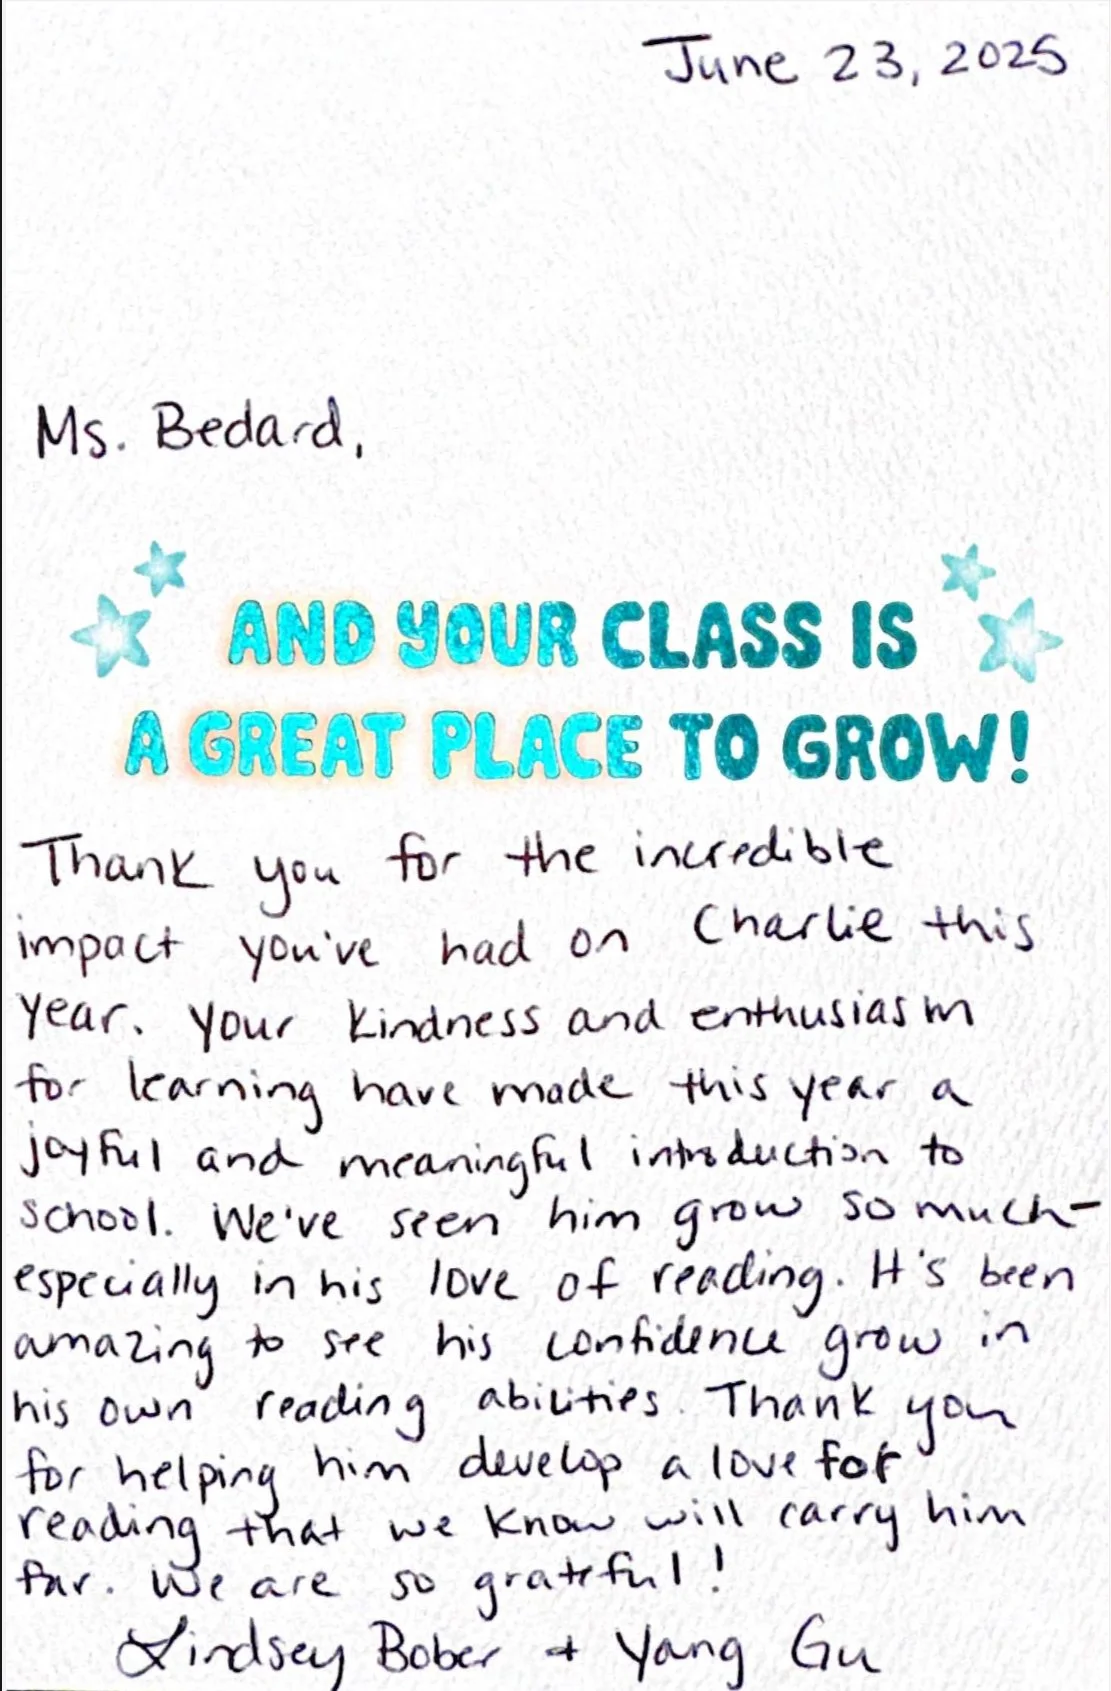 June 23, 2025
Ms. Bedard,
AND YOUR CLASS IS
A GREAT PLACE TO GROW!
Thank you for the incredible
impact you've had on Charlie this
year. Your kindness and enthusiasm
for learning have made this year a
joyful and meaningful introduction to
school. We've seen him grow so much-
especially in his love of reading. It's been
amazing to see his confidence grow in
his own reading abilities. Thank you
for helping him develop a love for
reading that we know will carry him
far. We are so grateful!
Lindsey Bober + Yang Gu